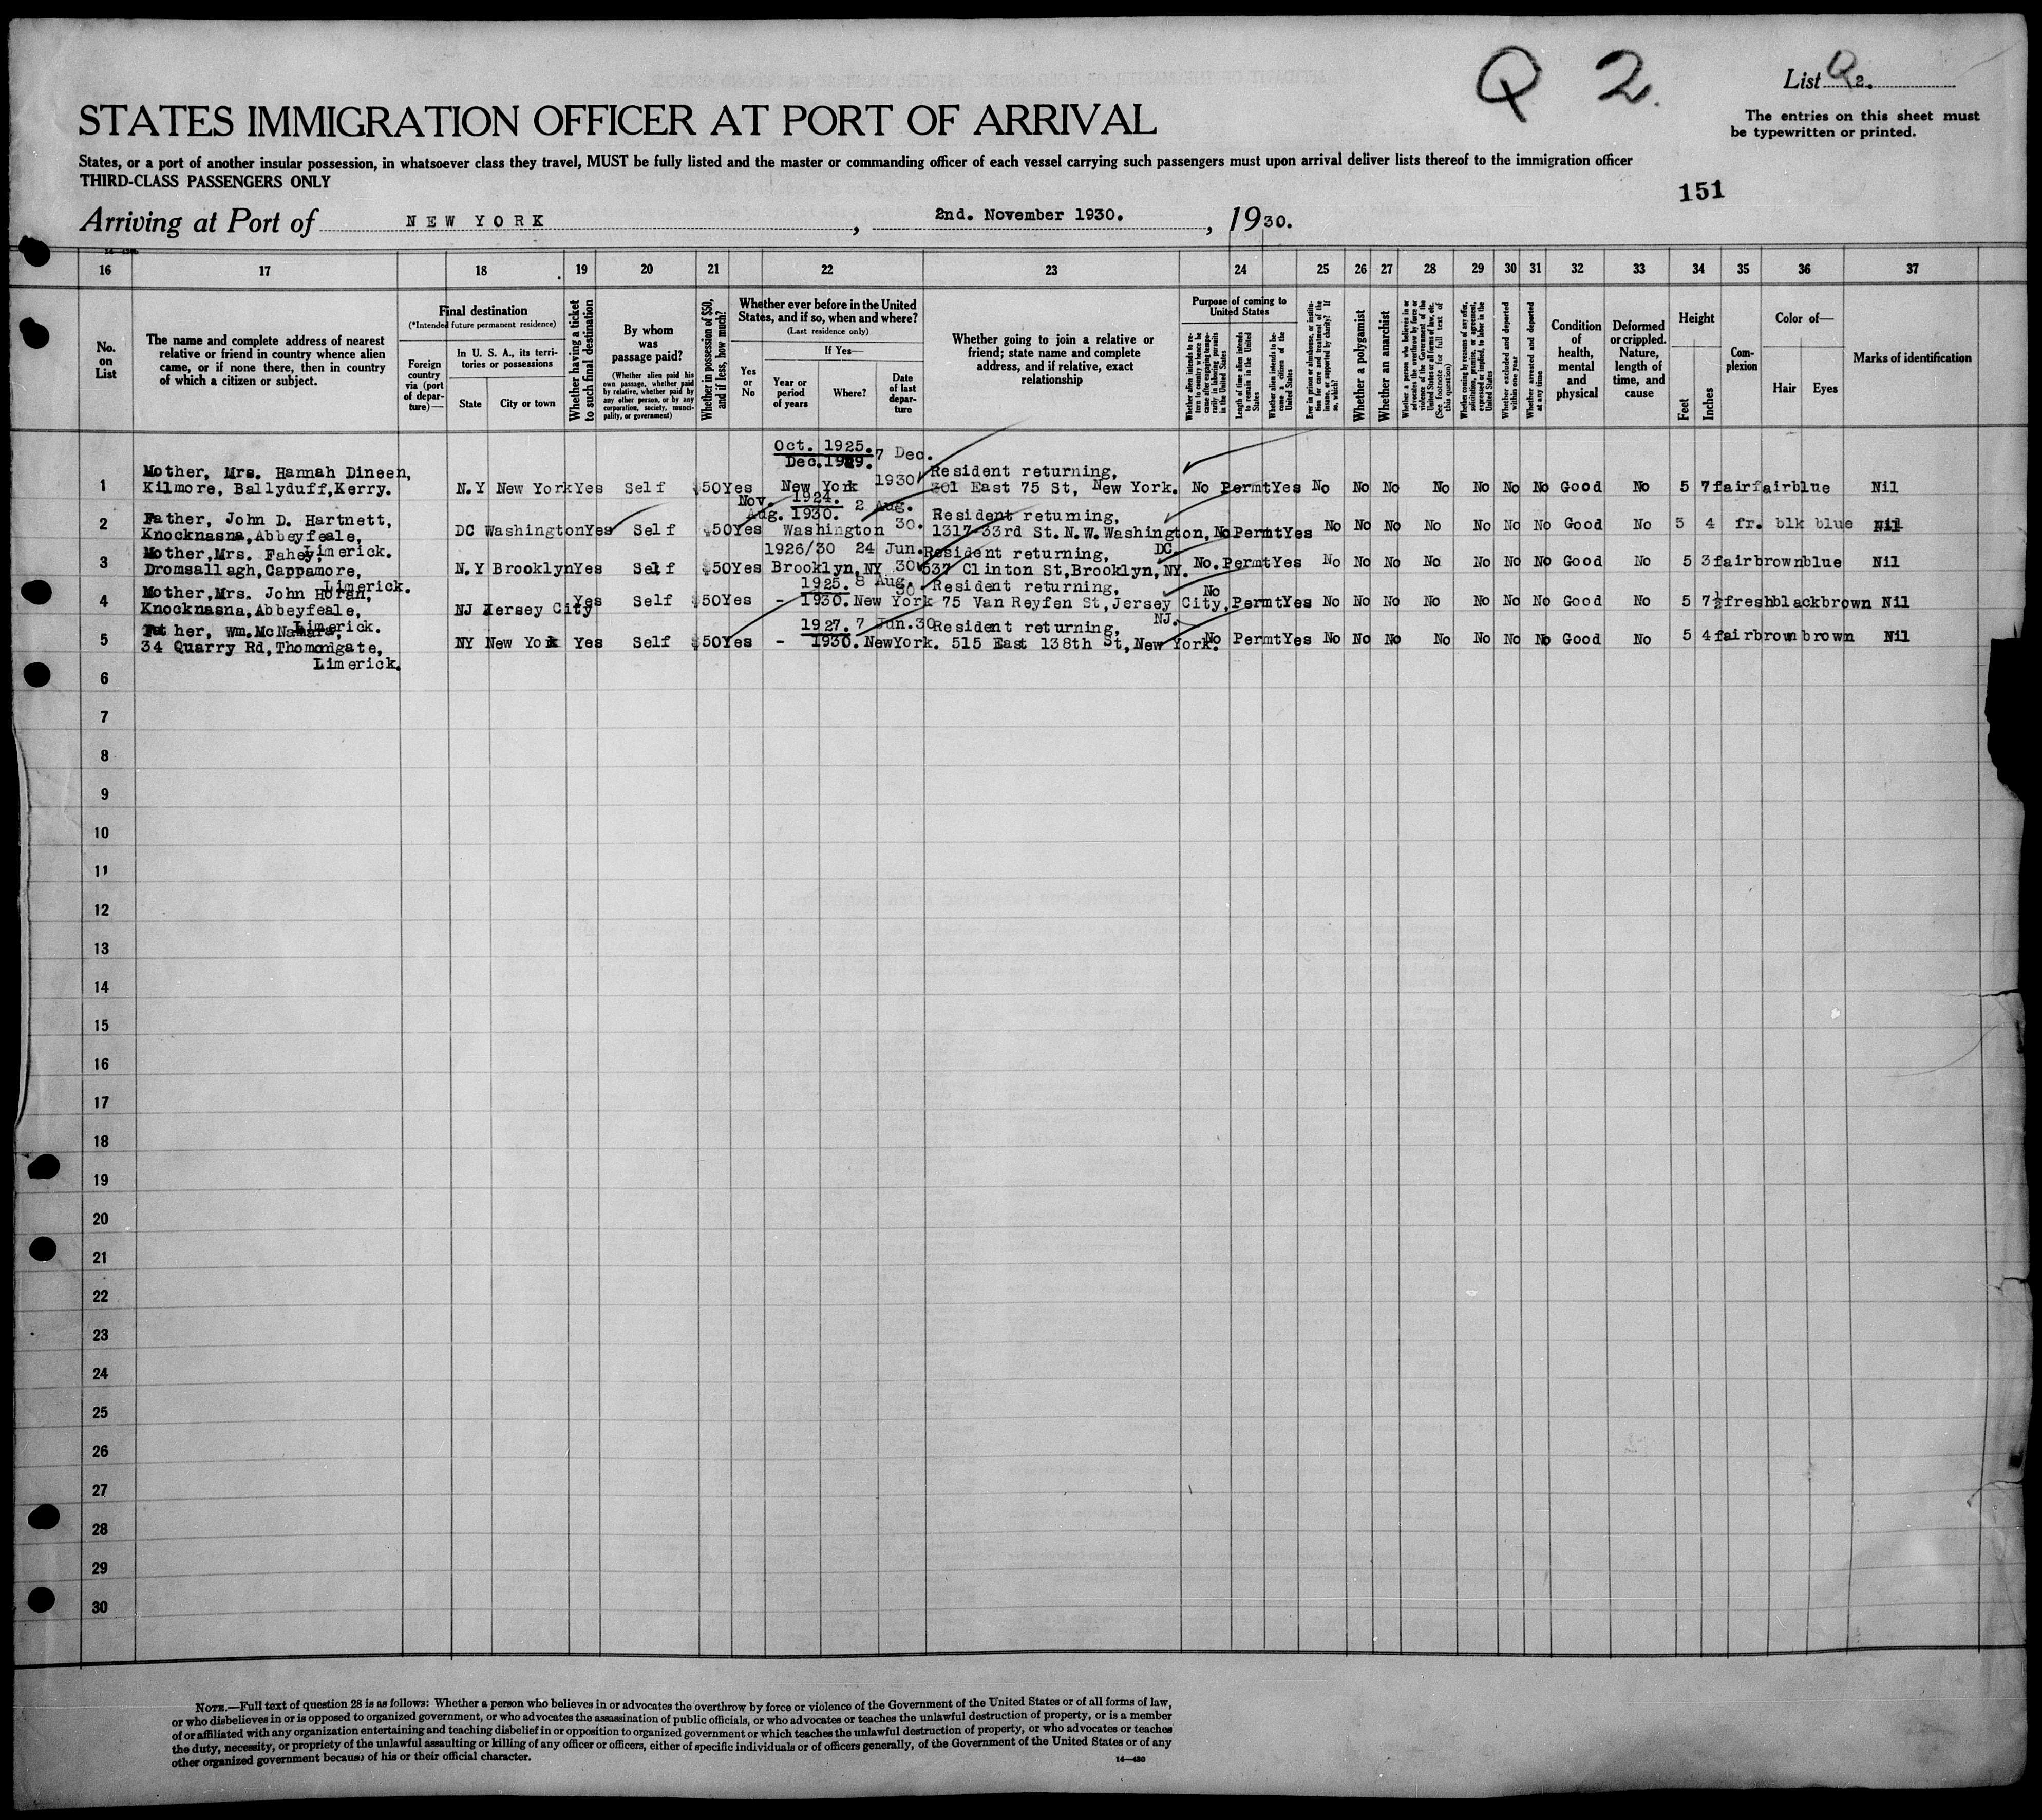 Q 2.
List Q 2.
The entries on this sheet must
be typewritten or printed.
STATES IMMIGRATION OFFICER AT PORT OF ARRIVAL
States, or a port of another insular possession, in whatsoever class they travel, MUST be fully listed and the master or commanding officer of each vessel carrying such passengers must upon arrival deliver lists thereof to the immigration officer
THIRD-CLASS PASSENGERS ONLY
151
Arriving at Port of NEW YORK, 2nd. November 1930., 1930.
16 17 18 19 20 21 22 23 24 25 26 27 28 29 30 31 32 33 34 35 36 37
No. on List
The name and complete address of nearest
relative or friend in country whence alien
came, or if none there, then in country
of which a citizen or subject.
Final destination
(*Intended future permanent residence)
Foreign country via (port of departure)—
In U. S. A., its territories or possessions
State
City or town
Whether having a ticket to such final destination
By whom was passage paid?
(Whether alien paid his own passage, whether paid by relative, whether paid by any other person, or by any corporation, society, municipality, or government)
Whether in possession of $50, and if less, how much?
Whether ever before in the United States, and if so, when and where?
(Last residence only)
Yes or No
If Yes—
Year or period of years
Where?
Date of last departure
Whether going to join a relative or
friend; state name and complete
address, and if relative, exact
relationship
Purpose of coming to United States
Whether alien intends to return to country whence he came after engaging temporarily in laboring pursuits in the United States
Length of time alien intends to remain in the United States
Whether alien intends to become a citizen of the United States
Ever in prison or almshouse, or institution for care and treatment of the insane, or supported by charity? If so, which?
Whether a polygamist
Whether an anarchist
Whether a person who believes in or advocates the overthrow by force or violence of the Government of the United States or all forms of law, etc. (See footnote for full text of this question)
Whether coming by reasons of any offer, solicitation, promise, or agreement, expressed or implied, to labor in the United States
Whether excluded and deported within one year
Whether arrested and deported at any time
Condition of health, mental and physical
Deformed or crippled. Nature, length of time, and cause
Height
Feet
Inches
Complexion
Color of—
Hair Eyes
Marks of identification
1 Mother, Mrs. Hannah Dineen, Kilmore, Ballyduff,Kerry. N.Y New York Yes Self $50 Yes Oct. 1925. Dec.1929. New York 7 Dec. 1930 Resident returning, 301 East 75 St, New York. No Permt Yes No No No No No No No Good No 5 7 fair fair blue Nil
2 Father, John D. Hartnett, Knocknasna,Abbeyfeale, Limerick. DC Washington Yes Self $50 Yes Nov. 1924. Aug. 1930. Washington 2 Aug. 30. Resident returning, 1317-33rd St.N.W.Washington, DC. No Permt Yes No No No No No No No Good No 5 4 fr. blk blue Nil
3 Mother,Mrs. Fahey, Dromsallagh,Cappamore, Limerick. N.Y Brooklyn Yes Self $50 Yes 1926/30 Brooklyn,NY 24 Jun. 30 Resident returning, 537 Clinton St,Brooklyn,NY. No. Permt Yes No No No No No No No Good No 5 3 fair brown blue Nil
4 Mother,Mrs. John Horan, Knocknasna,Abbeyfeale, Limerick. NJ Jersey City Yes Self $50 Yes 1925. - 1930. New York 8 Aug. 30 Resident returning, 75 Van Reyfen St,Jersey City, NJ. No Permt Yes No No No No No No No Good No 5 7½ fresh black brown Nil
5 Father, Wm.McNamara, 34 Quarry Rd,Thomondgate, Limerick. NY New York Yes Self $50 Yes 1927. - 1930. NewYork. 7 Jun.30 Resident returning, 515 East 138th St,New York. No Permt Yes No No No No No No No Good No 5 4 fair brown brown Nil
6
7
8
9
10
11
12
13
14
15
16
17
18
19
20
21
22
23
24
25
26
27
28
29
30
NOTE.—Full text of question 28 is as follows: Whether a person who believes in or advocates the overthrow by force or violence of the Government of the United States or of all forms of law,
or who disbelieves in or is opposed to organized government, or who advocates the assassination of public officials, or who advocates or teaches the unlawful destruction of property, or is a member
of or affiliated with any organization entertaining and teaching disbelief in or opposition to organized government or which teaches the unlawful destruction of property, or who advocates or teaches
the duty, necessity, or propriety of the unlawful assaulting or killing of any officer or officers, either of specific individuals or of officers generally, of the Government of the United States or of any
other organized government because of his or their official character.
14—430